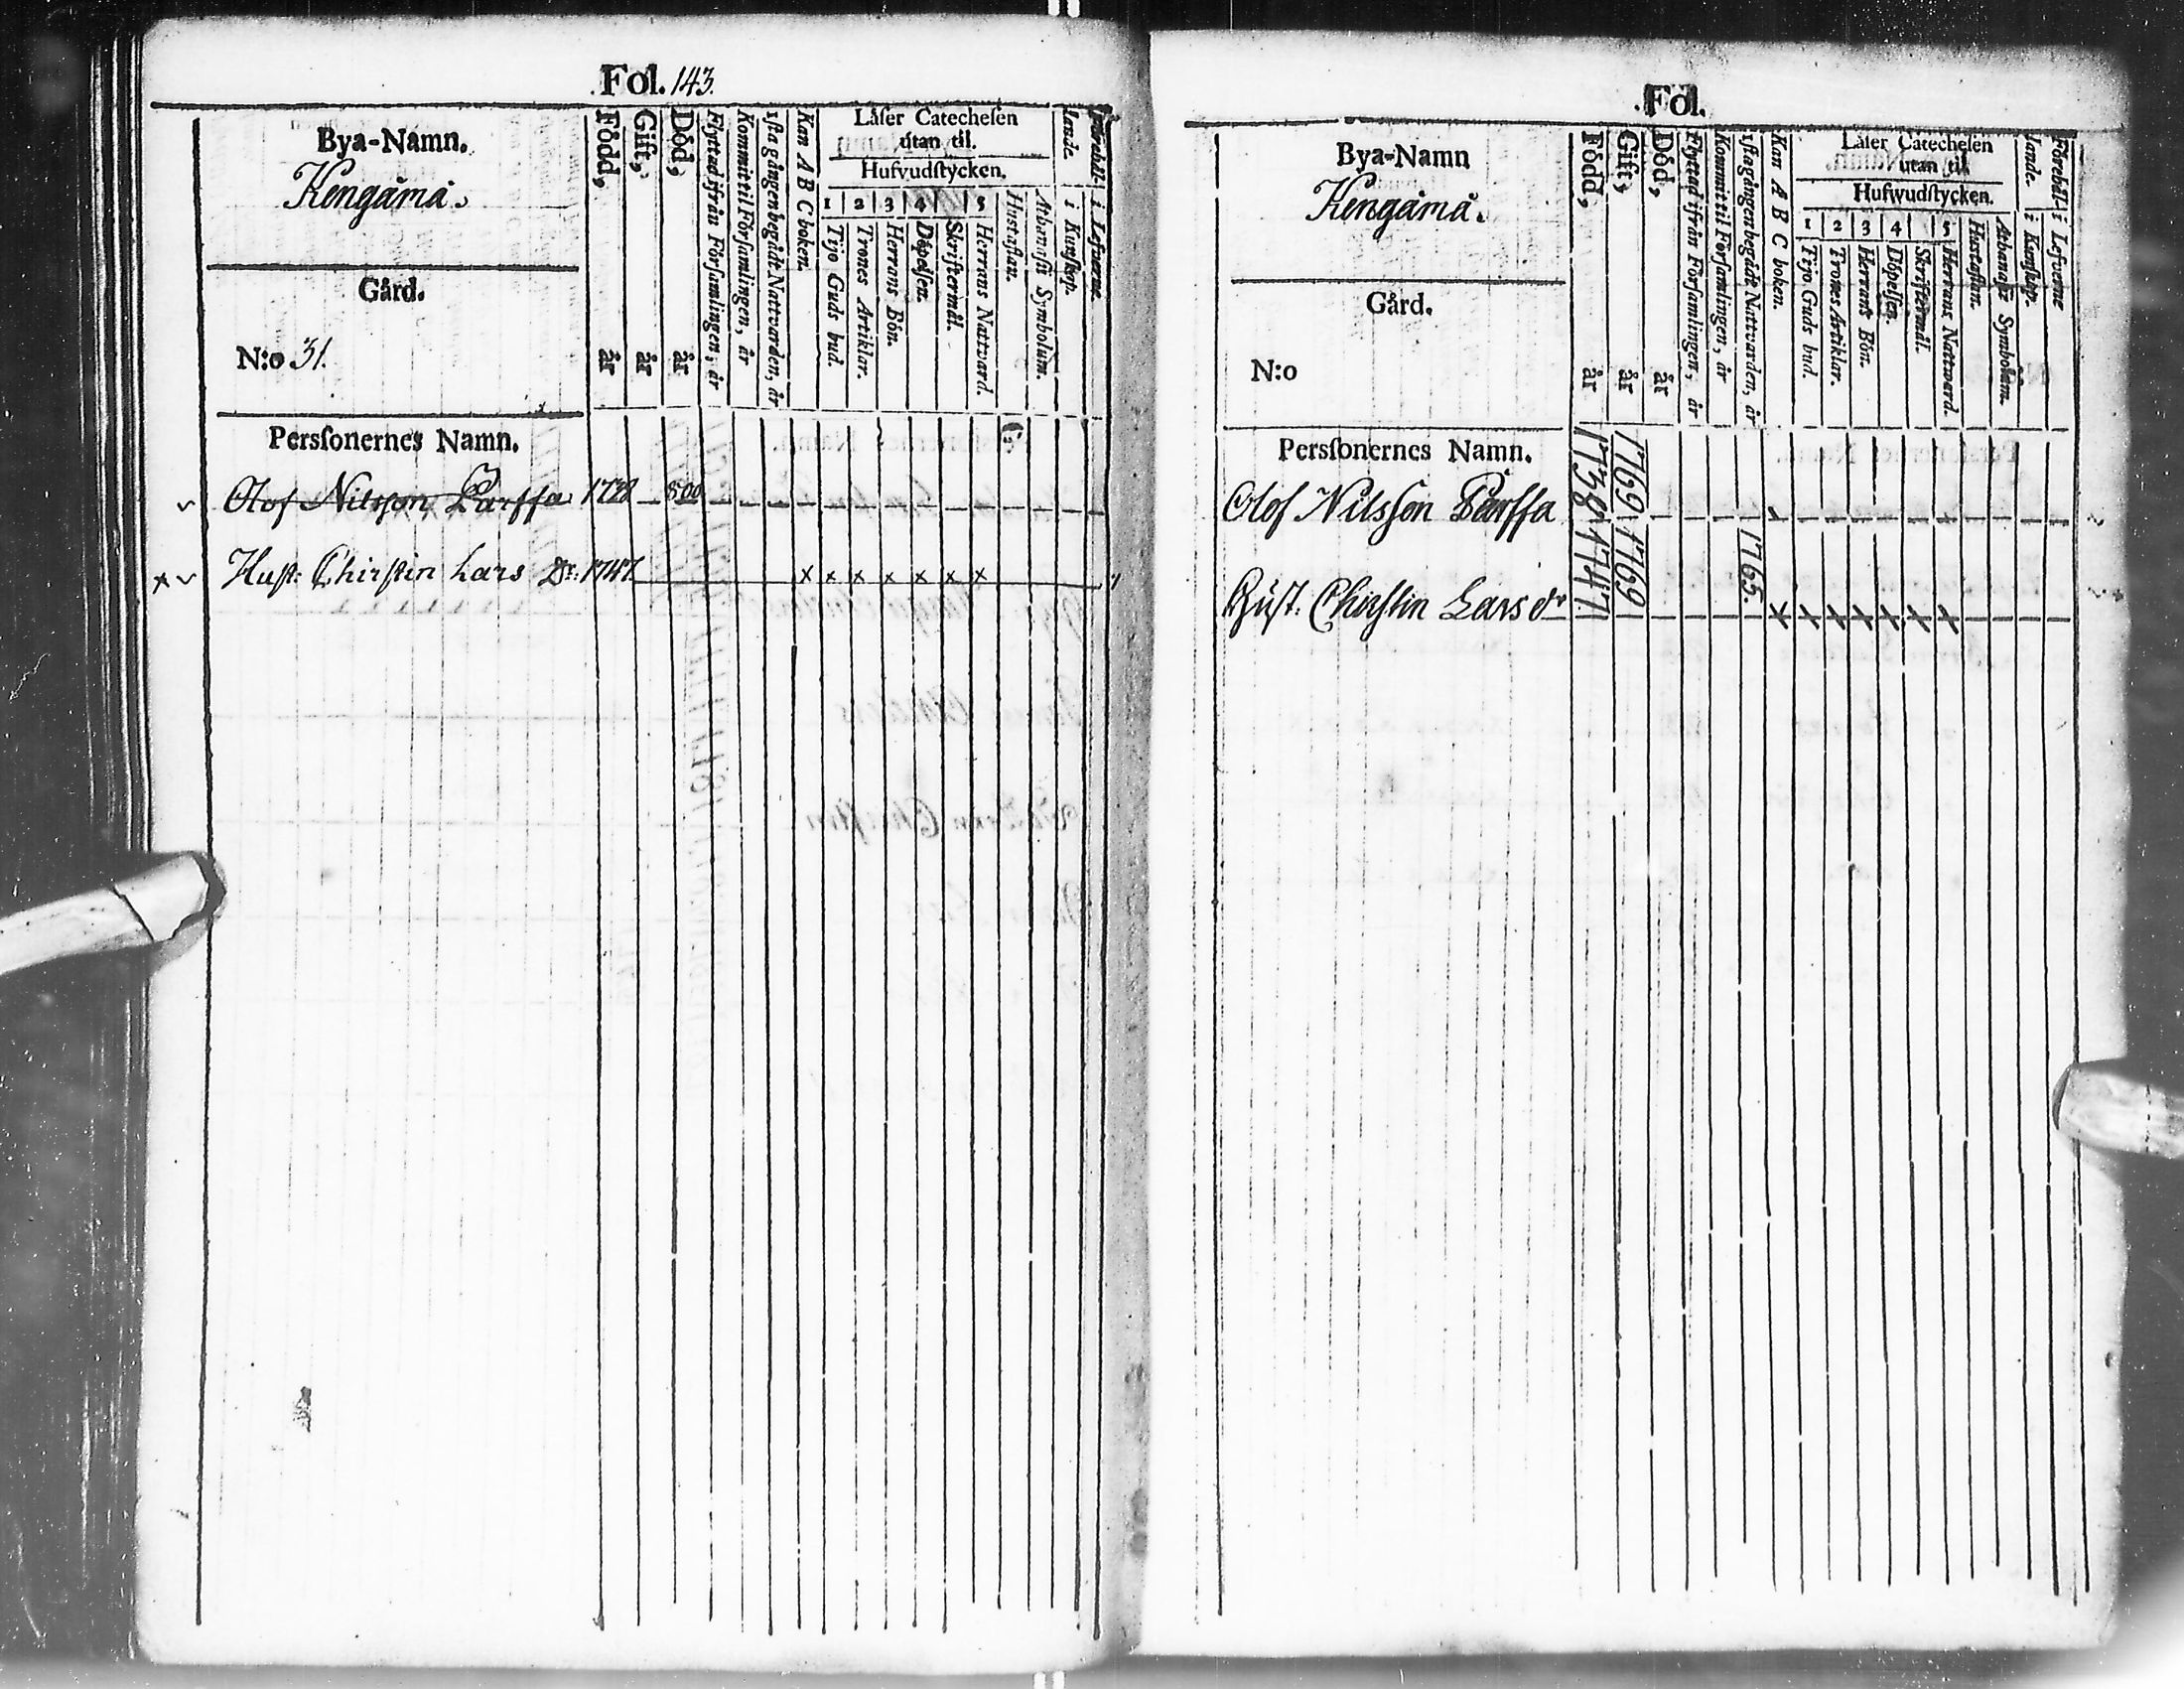 Fol. 143.
Bya-Namn.
Kengämä.
Gård.
N:o 31.
Född, år
Gift, år
Död, år
Flyttad ifrån Församlingen, år
Kommit til Församlingen, år
1sta gången begådt Nattvarden, år
Kan A B C boken.
Låser Catechesen
utan til.
Hufvudstycken.
1 2 3 4 5
Tijo Guds bud.
Trones Artiklar.
Herrans Bön.
Döpelsen.
Skriftermål.
Herrans Nattvard.
Hustaflan.
Athanasii Symbolum.
lande i Kunskap.
i Lefverne
Perssonernes Namn.
Olof Nilsson Parffa 1738 800
Hust: Chirstin Lars Dr: 1747 x x x x x x x
Fol.
Bya-Namn
Kengämä.
Gård.
N:o
Född, år
Gift, år
Död, år
Flyttad ifrån Församlingen, år
Kommit til Församlingen, år
1sta gången begådt Nattvarden, år
Kan A B C boken.
Låser Catechesen
utan til
Hufwudstycken.
1 2 3 4 5
Tijo Guds bud.
Trones Artiklar.
Herrans Bön.
Döpelsen.
Skriftermål.
Herrans Nattward.
Hustaflan.
Athanasii Symbolum.
Förehållande i Kunskap.
i Lefverne
Perssonernes Namn.
Olof Nilsson Parffa 1738 1769
Hust: Chirstin Lars dr 1747 1769 1765. x x x x x x x